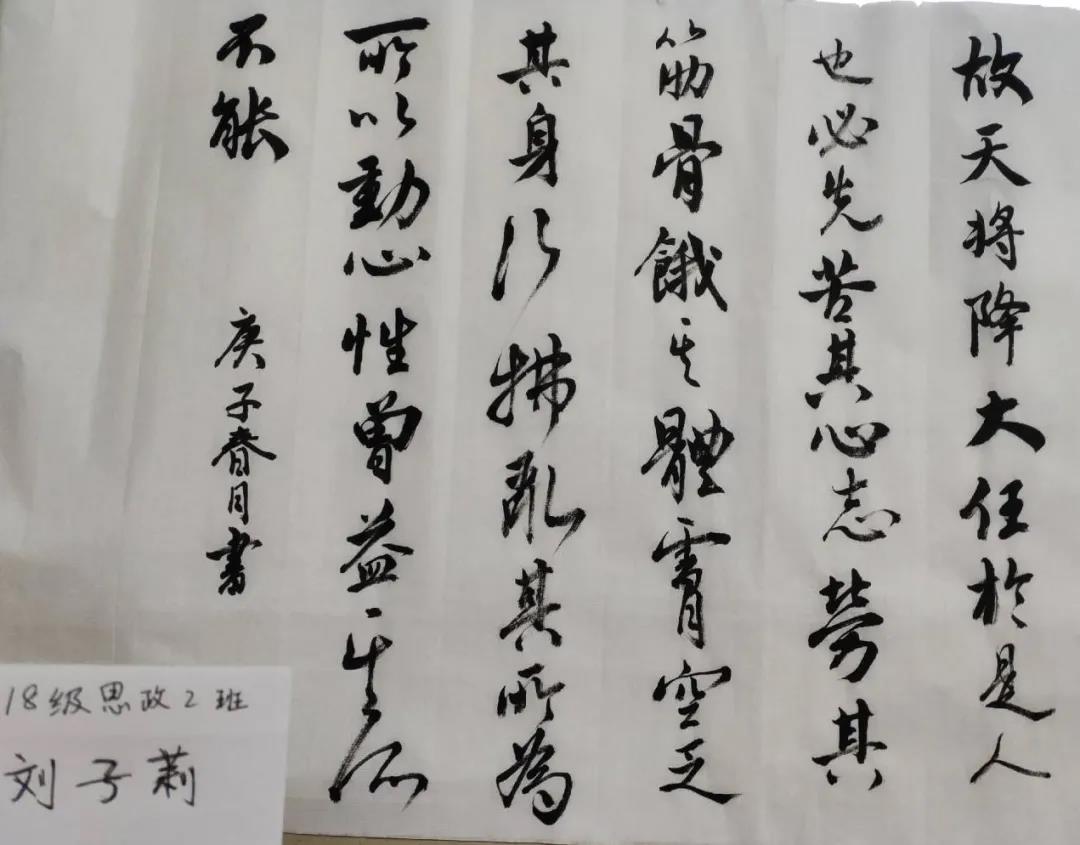 故天将降大任於是人
也必先苦其心志勞其
筋骨餓其體膚空乏
其身行拂亂其所為
所以動心性曾益其所
不能
庚子春月書
18级思政2班
刘子莉